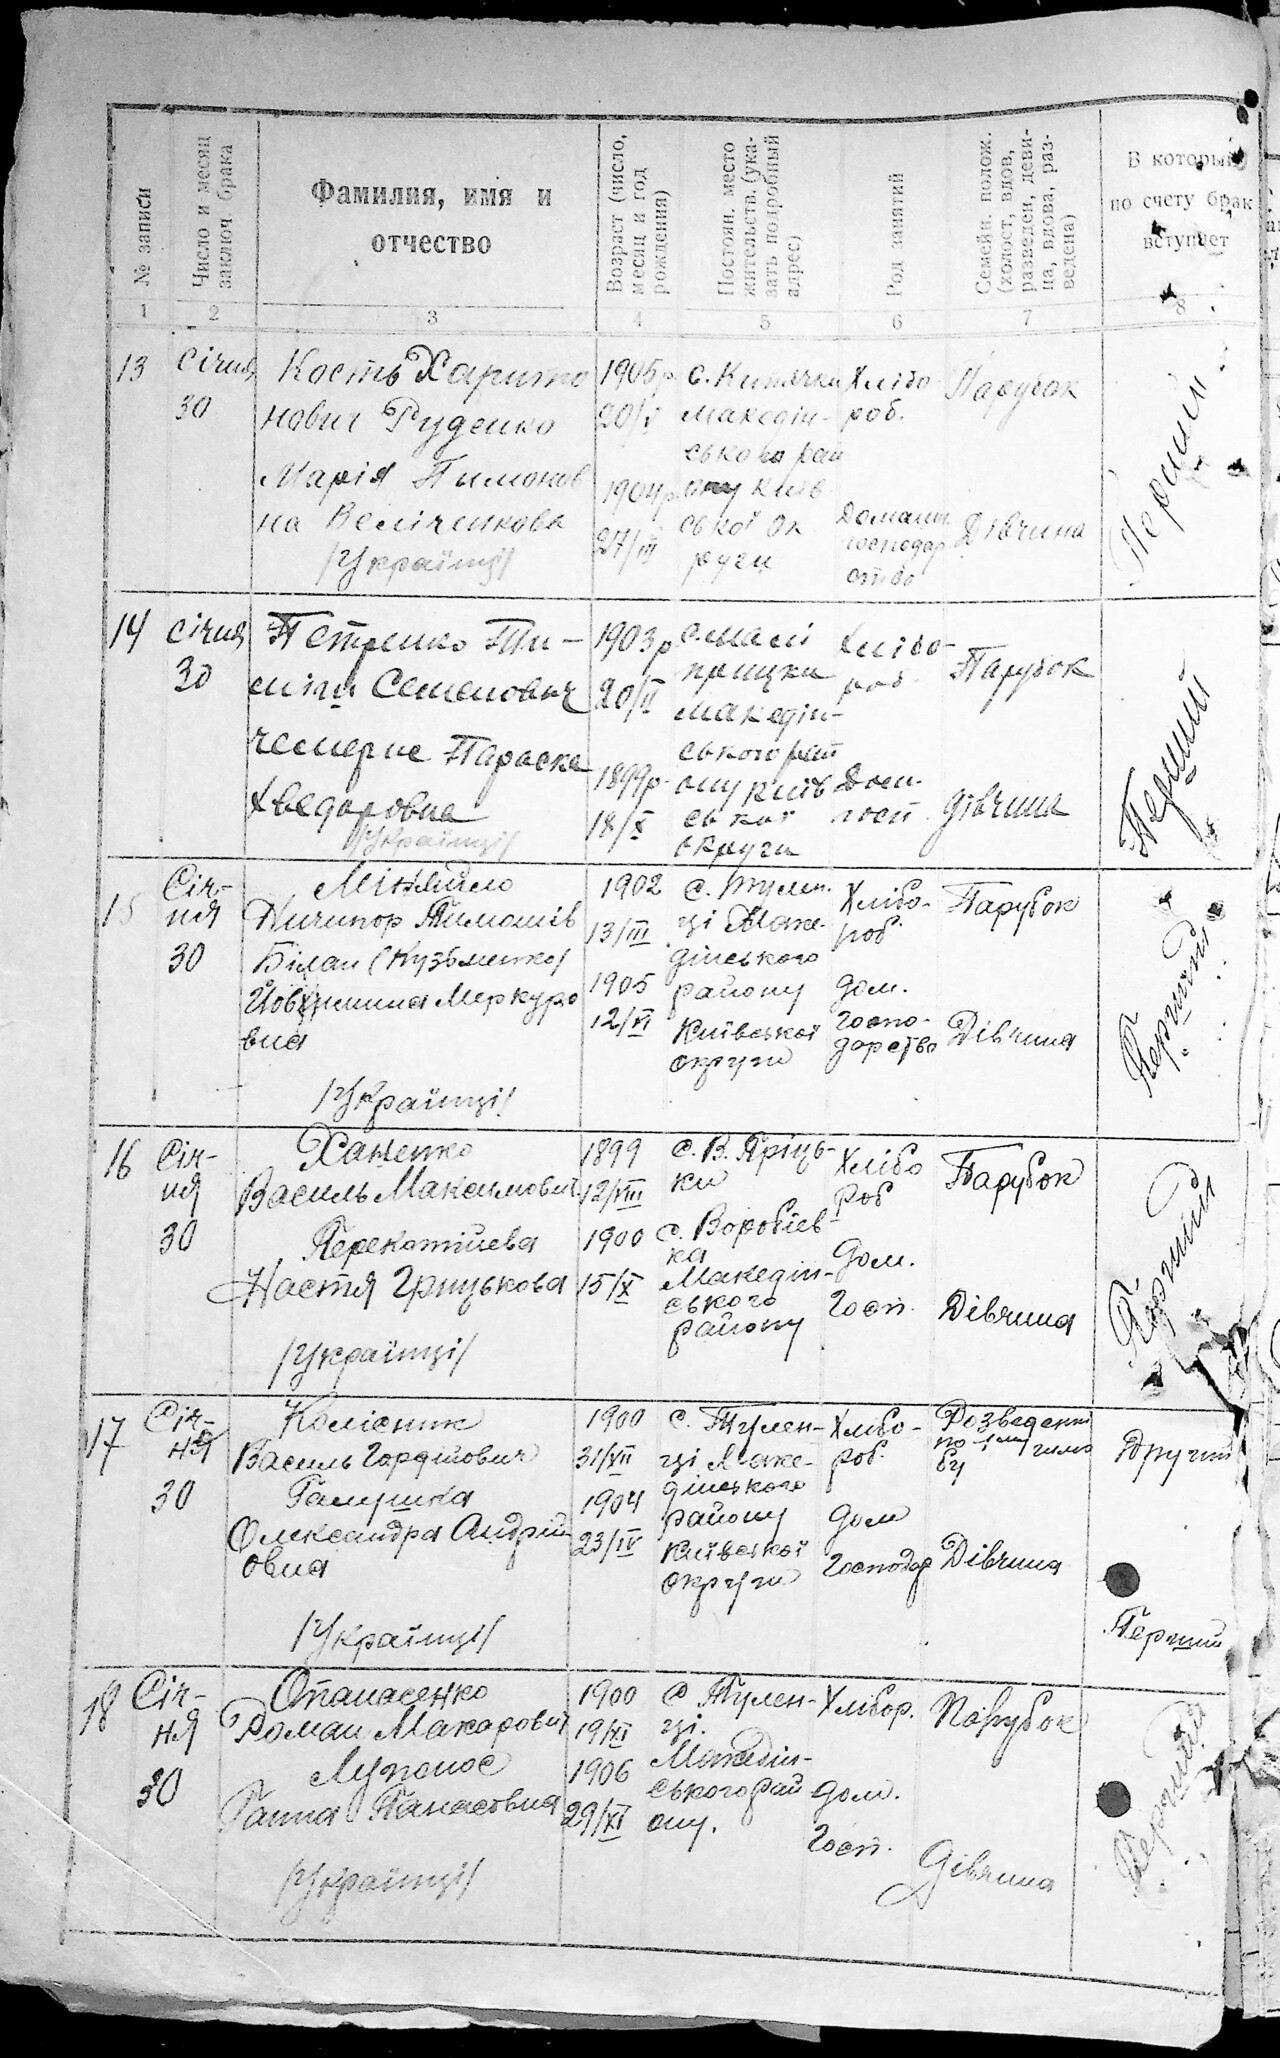 № записи
Число и месяц
заключ брака
Фамилия, имя и
отчество
Возраст (число,
месяц и год
рождения)
Постоян. место
жительств. (ука-
зать подробный
адрес)
Род занятий
Семейн. полож.
(холост, вдов,
разведен, деви-
ца, вдова, раз-
ведена)
В который
по счету брак
вступает
1 2 3 4 5 6 7 8
13
січня
30
Кость Харито
нович Руденко
Марія Тимонов
на Велічкова
/Українці/
1905р.
20/V
1904р.
27/III
с.
македін-
ського рай
ону Київ
ської ок
руги
Хлібо
роб.
Домашн.
господар
ство
Парубок
Дівчина
Перший
14
січня
30
Петренко Ти-
Семенович
Параска
Хведоровна
/Українці/
1903р
20/II
1899р.
18/X
с. малі
прицки
македін-
ського рай
ону Київ
ської
округи
Хлібо-
роб.
Дом.
госп.
Парубок
Дівчина
Перший
15
Січ-
ня
30
Ничипор Тимошів
Білан (Кузьменко/
Меркуро
вна
/Українці/
1902
13/III
1905
12/VI
с. Тулин.
ці Маке.
дінського
району
Київської
округи
Хлібо-
роб.
дом.
госпо-
дарство
Парубок
Дівчина
Перший
16
Січ-
ня
30
Ханенко
Василь Максимович
Перекотієва
Настя Грицькова
/Українці/
1899
12/VIII
1900
15/X
с. В. Пріць-
ки
с. Воробієв-
ка
Македін-
ського
району
Хлібо
роб
дом.
Госп.
Парубок
Дівчина
Перший
17
Січ-
ня
30
Колісник
Василь Гордійович
Галушка
Олександра Андрій
овна
/Українці/
1900
31/VII
1904
23/IV
с. Тулен-
ці Маке-
дінського
району
Київської
округи
Хлібо-
роб.
дом
Господар
Розведений
по
Дівчина
Другий
Перший
18
Січ-
ня
30
Опанасенко
Роман Макарович
Лупонос
Ганна Панасовна
/Українці/
1900
19/XI
1906
29/XI
с Тулен-
ці.
Македін-
ського рай
ону.
Хлібор.
дом.
Госп.
Парубок
Дівчина
Перший